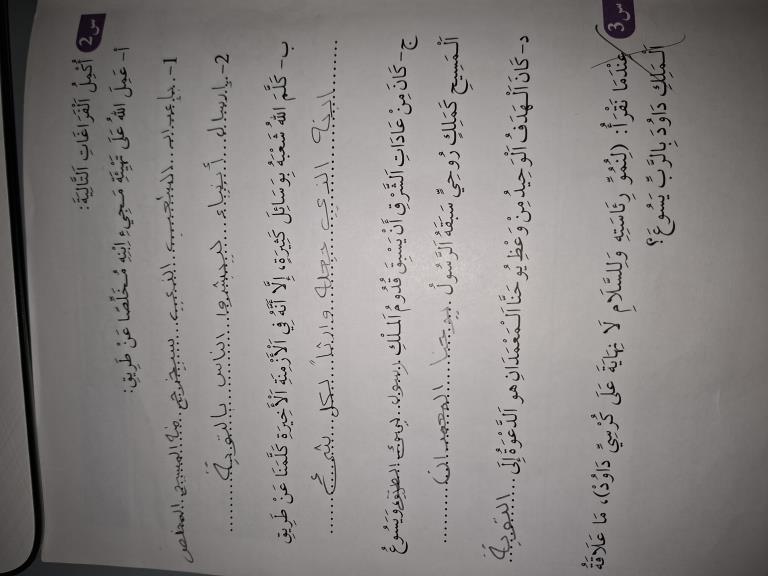 س2 أَكْمِلُ ٱلْفَرَاغَاتِ ٱلتَّالِيَةَ:
أ- عَمِلَ اللهُ عَلَى تَهْيِئَةِ مَجِيءِ ابْنِهِ مُخَلِّصًا عَنْ طَرِيقِ:
1- بإعداد الشعب الذي سيخرج منه المسيح المخلص
2- بإرسال أنبياء ليبشروا الناس بالتوبة
ب- كَلَّمَ اللهُ شَعْبَهُ بِوَسَائِلَ كَثِيرَةٍ، إِلَّا أَنَّهُ فِي ٱلْأَزْمِنَةِ ٱلْأَخِيرَةِ كَلَّمَنَا عَنْ طَرِيقِ
ابنه الذي جعله وارثاً لكل شيء
ج- كَانَ مِنْ عَادَاتِ الشَّرْقِ أَنْ يَسْبِقَ قُدُومَ ٱلْمَلِكِ رسول يهيئ الطريق وَيَسُوعُ
ٱلْمَسِيحُ كَمَلِكٍ رُوحِيٍّ سَبَقَهُ ٱلرَّسُولُ يوحنا المعمدان
د- كَانَ ٱلْهَدَفُ ٱلْوَحِيدُ مِنْ وَعْظِ يُوحَنَّا ٱلْمَعْمَدَانِ هو ٱلدَّعْوَةُ إِلَى التوبة
س3 عِنْدَمَا نَقْرَأُ: (لِنُمُوِّ رِئَاسَتِهِ وَلِلسَّلَامِ لَا نِهَايَةَ عَلَى كُرْسِيِّ دَاوُدَ)، مَا عَلَاقَةُ
ٱلْمَلِكِ دَاوُدَ بِالرَّبِّ يَسُوعَ؟